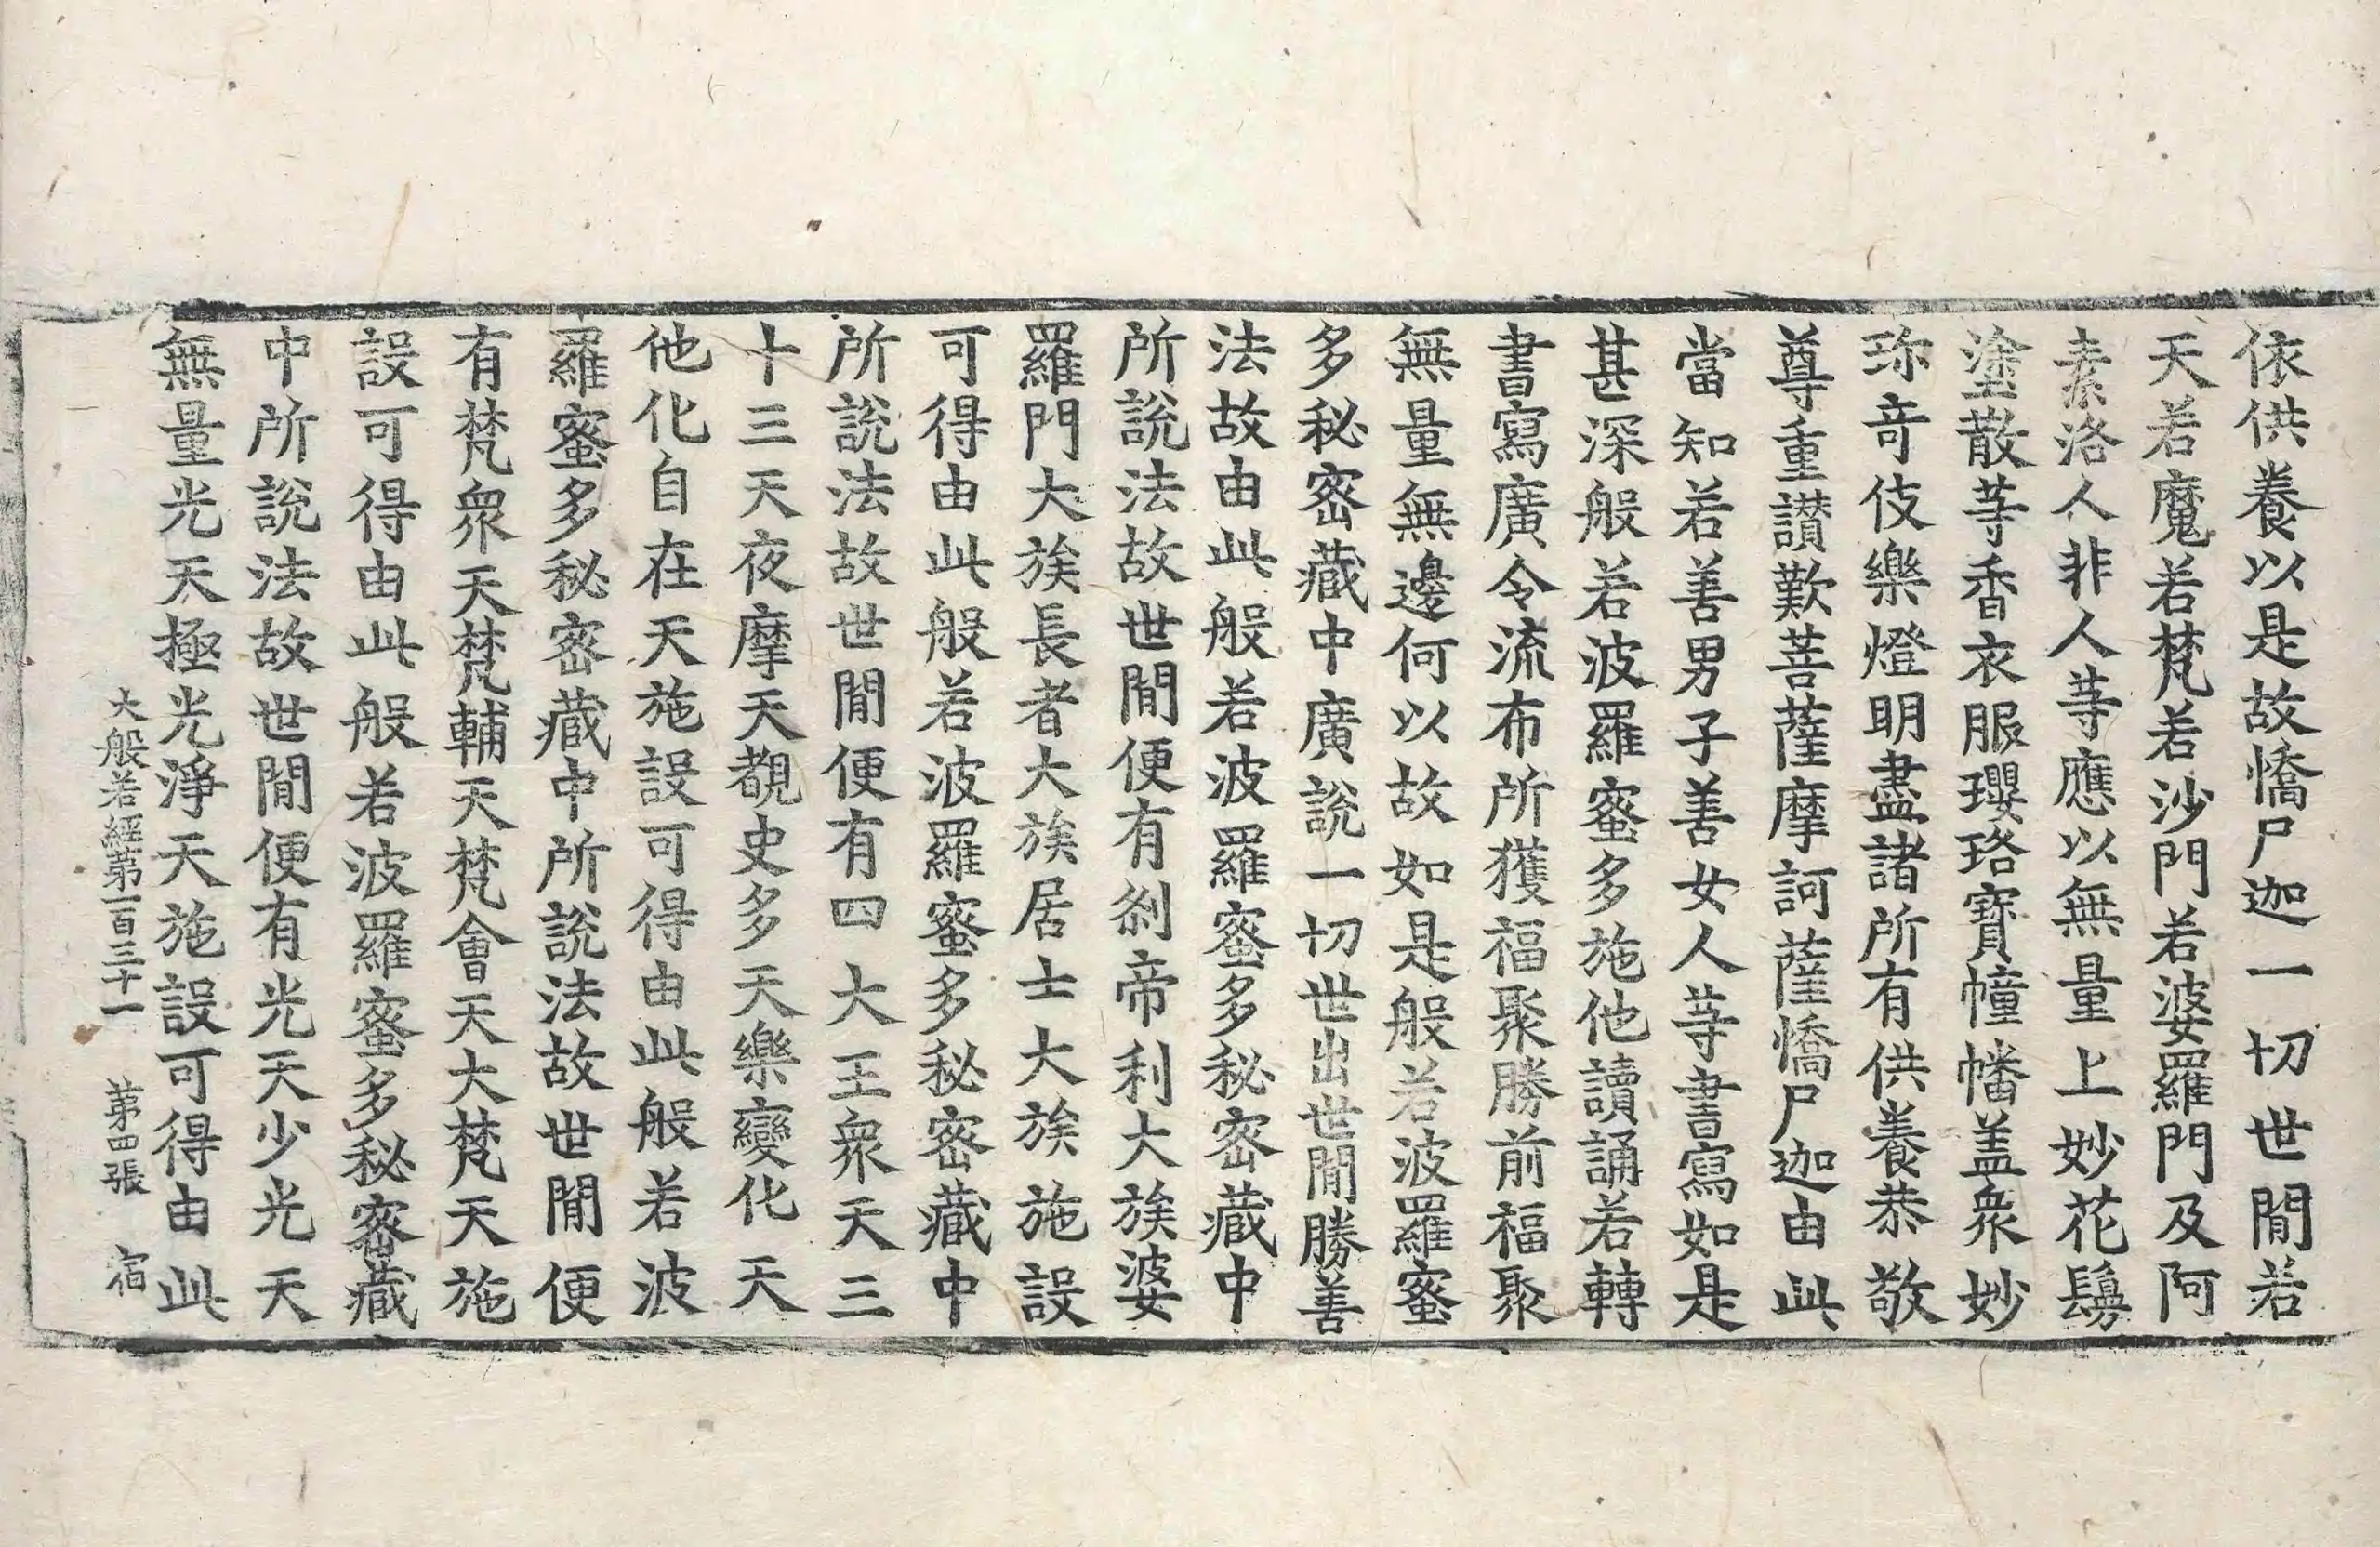 依供養以是故憍尸迦一切世閒若
天若魔若梵若沙門若婆羅門及阿
素洛人非人等應以無量上妙花鬘
塗散等香衣服瓔珞寶幢幡盖衆妙
珎竒伎樂燈明盡諸所有供養恭敬
尊重讃歎菩薩摩訶薩憍尸迦由此
當知若善男子善女人等書寫如是
甚深般若波羅蜜多施他讀誦若轉
書寫廣令流布所獲福聚勝前福聚
無量無邊何以故如是般若波羅蜜
多秘密藏中廣說一切世出世閒勝善
法故由此般若波羅蜜多秘密藏中
所說法故世閒便有刹帝利大族婆
羅門大族長者大族居士大族施設
可得由此般若波羅蜜多秘密藏中
所說法故世閒便有四大王衆天三
十三天夜摩天覩史多天樂變化天
他化自在天施設可得由此般若波
羅蜜多秘密藏中所說法故世閒便
有梵衆天梵輔天梵會天大梵天施
設可得由此般若波羅蜜多秘密藏
中所說法故世閒便有光天少光天
無量光天極光淨天施設可得由此
大般若經第一百三十一　第四張　宿